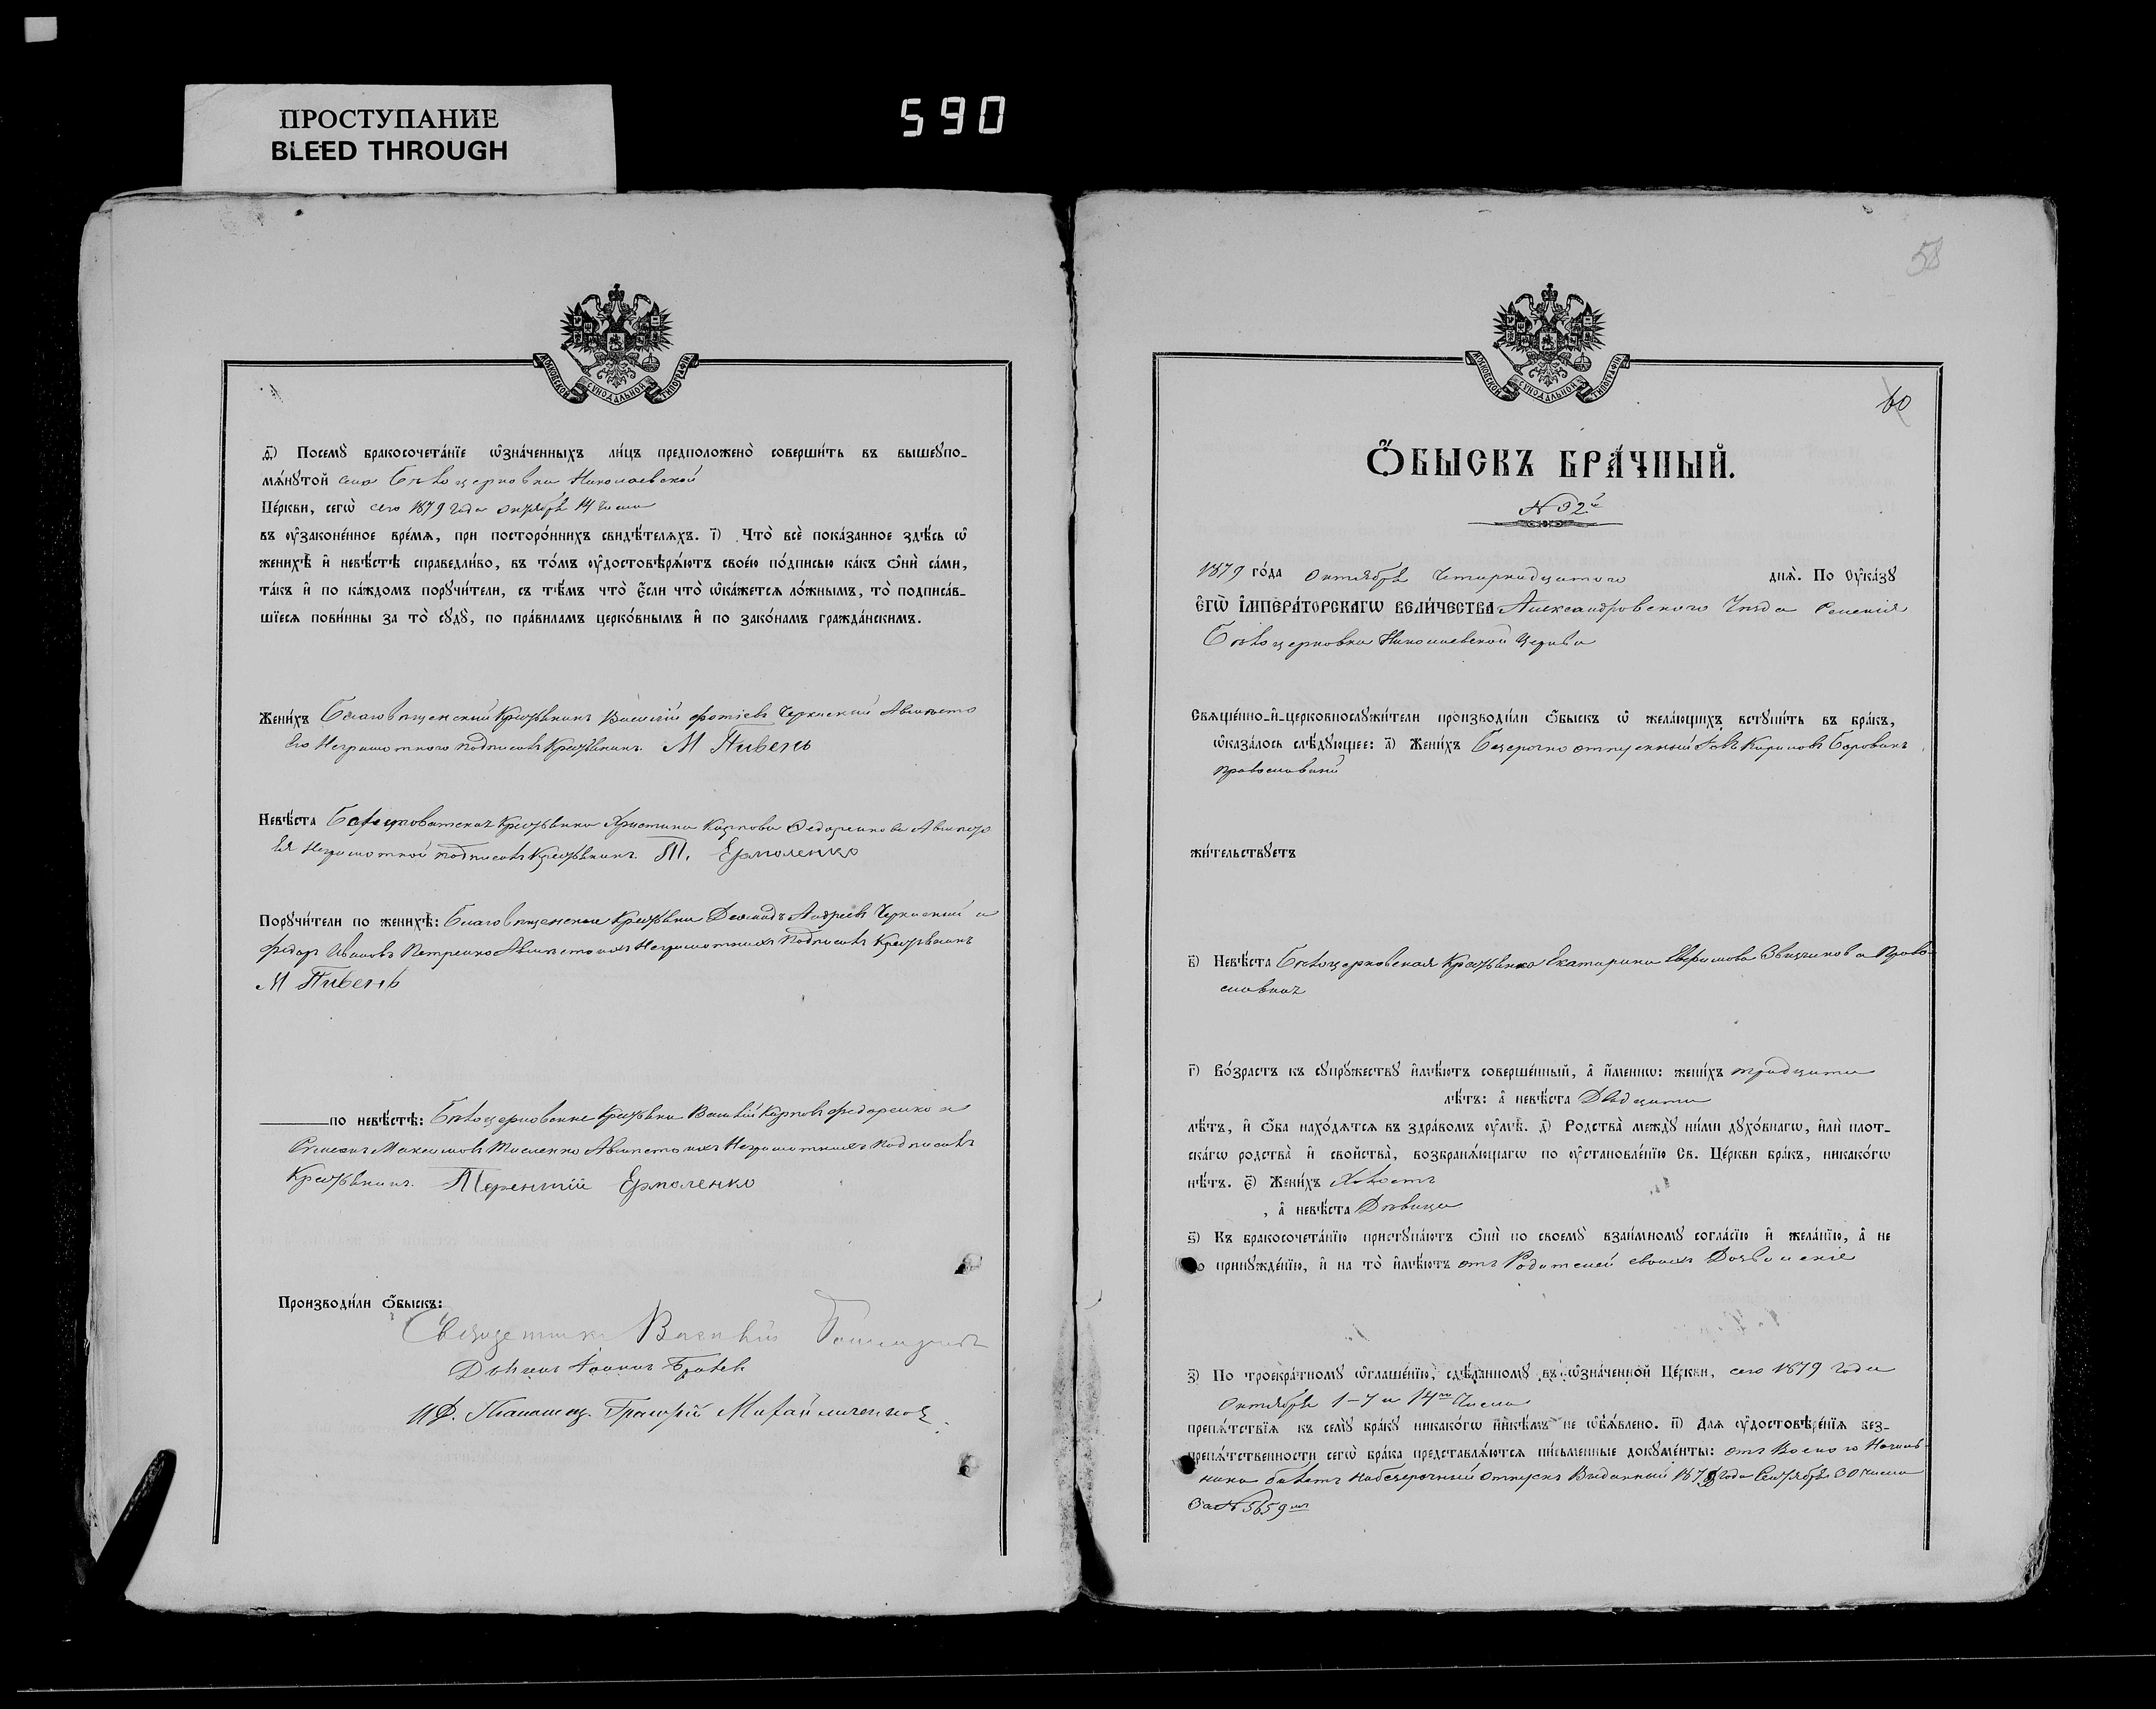 ПРОСТУПАНИЕ
BLEED THROUGH
590
МОСКОВСКОЙ СѴНОДАЛЬНОЙ ТИПОГРАФІИ
д҃) Посемꙋ̀ бракосочета́нїе ѡ҆зна́ченныхъ ли́цъ предположено̀ соверши́ть въ вышеꙋпо-
мѧ́нꙋтой села Бѣлоцерковки Николаевской
Це́ркви, сегѡ̀ сего 1879 года октября 14 числа
въ ᲂу҆законе́нное вре́мѧ, при посторо́ннихъ свидѣ́телѧхъ. і҃) Что̀ всѐ пока́занное здѣ́сь ѡ҆
женихѣ̀ и҆ невѣ́стѣ справедли́во, въ то́мъ ᲂу҆достовѣрѧ́ютъ свое́ю по́дписью ка́къ ѻ҆нѝ са́ми,
та́къ и҆ по ка́ждомъ порꙋчи́тели, съ тѣ́мъ что̀ є҆́сли что̀ ѡ҆ка́жетсѧ ло́жнымъ, то̀ подписа́в-
шїесѧ пови́нны за то̀ сꙋдꙋ̀, по пра́виламъ церко́внымъ и҆ по зако́намъ гражда́нскимъ.
Жени́хъ Благовѣщенский Крестьянинъ Василій Фотіевъ Черкаский Авместо
его Неграмотного подписалъ Крестьянинъ М Пивень
Невѣ́ста Крестьянка Христина Карпова Федоренкова Авместо
ея Неграмотной подписалъ Крестьянинъ Т. Ермоленко
Порꙋчи́тели по женихѣ̀: Благовѣщенские Крестьяне Андреевъ Черкаский и
Федоръ Ивановъ Петренко Авместо ихъ Неграмотныхъ Подписалъ Крестьянинъ
М Пивень
по невѣ́стѣ: Бѣлоцерковские Крестьяне Василій Карповъ Федоренко и
Максимовъ Тисленко Авместо ихъ Неграмотныхъ Подписалъ
Крестьянинъ Терентій Ермоленко
Производи́ли ѻ҆́быскъ:
Священникъ Василій
Дьяконъ Іоаннъ
И.Д. Псаломщ. Григорій
58
МОСКОВСКОЙ СѴНОДАЛЬНОЙ ТИПОГРАФІИ
60
Ѻ҆́БЫСКЪ БРА́ЧНЫЙ.
№ 32й
1879 го́да Октября Четырнадцатого днѧ̀. По Оу҆ка́зꙋ
Є҆гѡ̀ И҆мпера́торскагѡ Вели́чества Александровского Уезда Селения
Бѣлоцерковки Николаевской Церкви
Свѧще́нно-и҆-церковнослꙋжи́тели производи́ли ѻ҆́быскъ ѡ҆ жела́ющихъ встꙋпи́ть въ бра́къ,
ѡ҆каза́лось слѣ́дꙋющее: а҃) Жени́хъ Безсрочно отпускный Іовъ Кириловъ Боровикъ
православний
жи́тельствꙋетъ
в҃) Невѣ́ста Бѣлоцерковская Крестьянка Екатерина Ефимова Право-
славная
г҃) Во́зрастъ къ сꙋпрꙋ́жествꙋ и҆мѣ́ютъ соверше́нный, а҆ и҆́меннѡ: жени́хъ тридцати
лѣ́тъ: а҆ невѣ́ста Двадцати
лѣ́тъ, и҆ ѻ҆́ба нахо́дѧтсѧ въ здра́вомъ ᲂу҆мѣ̀. д҃) Родства̀ междꙋ̀ ни́ми дꙋхо́внагѡ, и҆лѝ плот-
ска́гѡ родства̀ и҆ сво́йства̀, возбранѧ́ющагѡ по ᲂу҆становле́нїю Св. Це́ркви бра́къ, никако́гѡ
нѣ́тъ. є҃) Жени́хъ Холостъ
, а҆ невѣ́ста Дѣвица
ѕ҃) Къ бракосочета́нїю пристꙋпа́ютъ ѻ҆нѝ по своемꙋ̀ взаи́мномꙋ согла́сїю и҆ жела́нїю, а҆ не
по принꙋжде́нїю, и҆ на то̀ и҆мѣ́ютъ отъ Родителей своихъ Дозволение
з҃) По троекра́тномꙋ ѡ҆глаше́нїю, сдѣ́ланномꙋ въ ѡ҆зна́ченной Це́ркви, сего 1879 года
Октября 1-7 и 14го Числа
препѧ́тствїѧ къ семꙋ̀ бра́кꙋ никако́гѡ и҆ никѣ́мъ не ѡ҆б̾ѧ́влено. и҃) Длѧ ᲂу҆достовѣре́нїѧ без-
препѧ́тственности сегѡ̀ бра́ка представлѧ́ютсѧ пи́сьменные докꙋме́нты: отъ Воен го Началь
ника билетъ набезсрочный отпускъ Выданный года Сентября 30 числа
За № 5659мъ